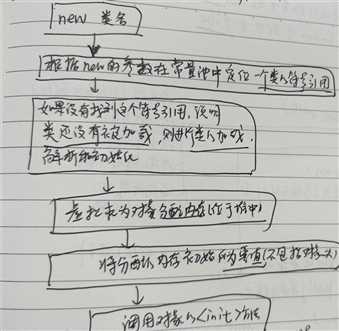 new 类名
根据new的参数在常量池中定位一个类的符号引用
如果没有找到这个符号引用，说明
类还没有被加载，则进行类的加载，
解析和初始化
虚拟机为对象分配内存(位于堆中)
将分配的内存初始化为零值(不包括对象头)
调用对象的<init>方法